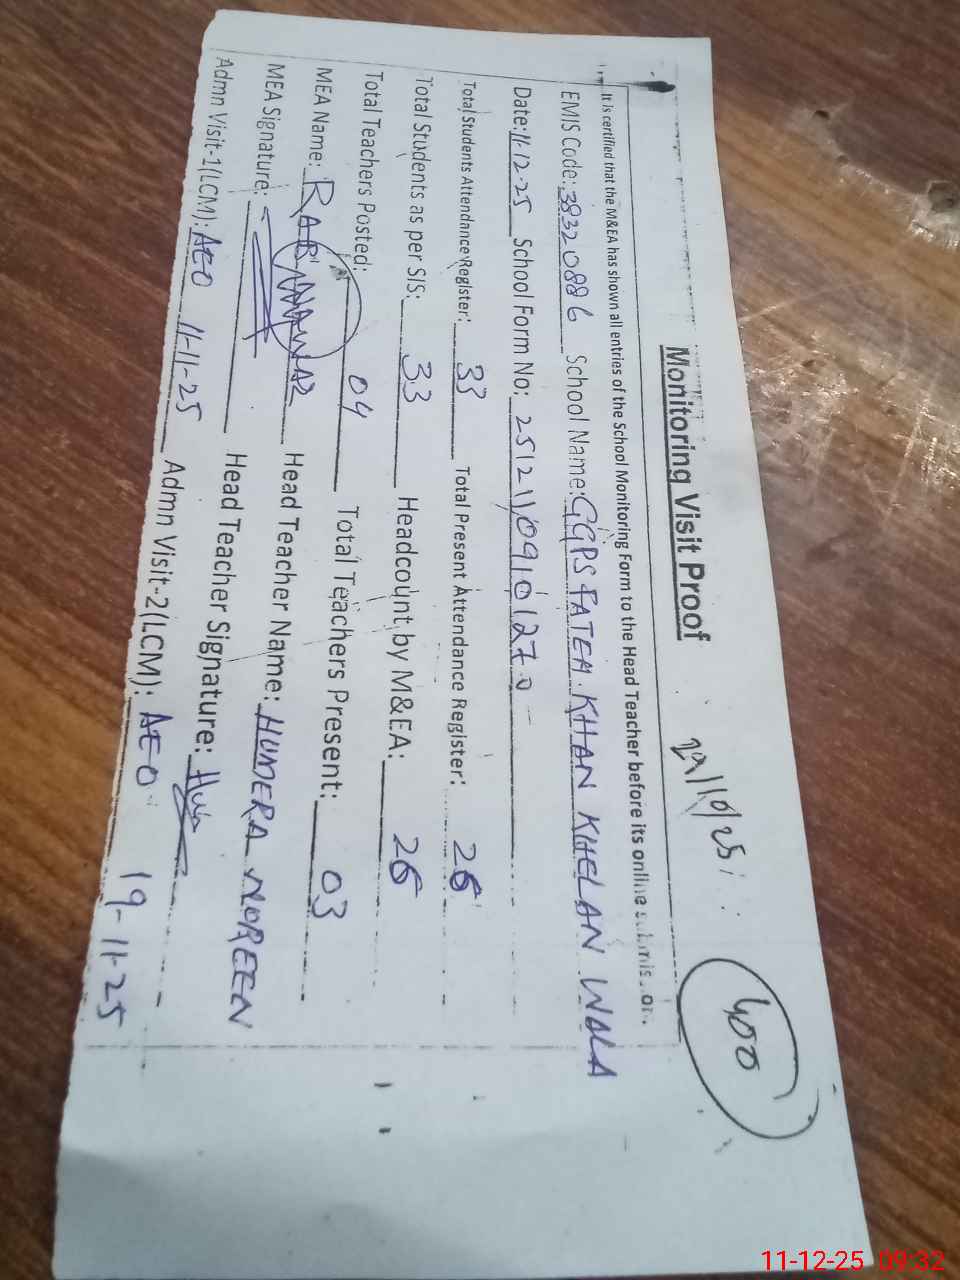 Monitoring Visit Proof
400
It is certified that the M&EA has shown all entries of the School Monitoring Form to the Head Teacher before its online submission.
EMIS Code: 38320886 School Name: GGPS FATEH KHAN KHELAN WALA
Date: 11-12-25 School Form No: 2512110910127
Total Students Attendance Register: 33 Total Present Attendance Register: 26
Total Students as per SIS: 33 Headcount by M&EA: 26
Total Teachers Posted: 04 Total Teachers Present: 03
MEA Name: Head Teacher Name: HUMERA NOREEN
MEA Signature: Head Teacher Signature:
Admn Visit-1(LCM): AEO 11-11-25 Admn Visit-2(LCM): AEO 19-11-25
11-12-25 09:32